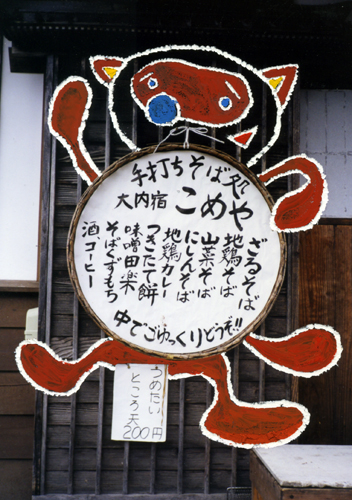 手打ちそば処
大内宿 こめや
ざるそば
地鶏そば
山菜そば
にしんそば
地鶏カレー
つきたて餅
味噌田楽
そばくずもち
酒コーヒー
中でごゆっくりどうぞ!!
つめたい
ところ天
200円